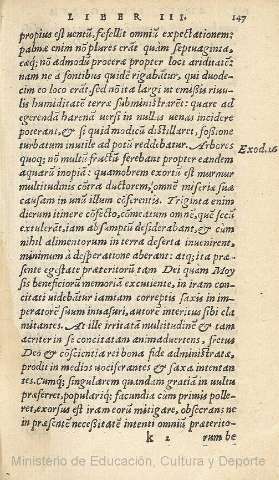 LIBER III. 147
propius est uentũ, fefellit omniũ expectationem:
palmæ enim nõ plures erãt quàm septuaginta,
eæq; nõ admodũ proceræ propter loci ariditatẽ:
nam ne à fontibus quidẽ rigabãtur, qui duode-
cim eo loco erãt, sed nõ ita largi ut emißis riuu-
lis humiditatẽ terræ subministrarẽt: quare ad
egerendã harenã uersi in nullas uenas incidere
poterant, & si quid modicũ distillaret, foßione
turbatum inutile ad potũ reddebatur. Arbores
quoq; nõ multũ fructũ ferebant propter eandem
aquarũ inopiã: quamobrem exortũ est murmur
multitudinis cõtra ductorem, omnẽ miseriæ suæ
causam in unũ illum cõferentis. Triginta enim
dierum itinere cõfecto, cõmeatum omnẽ, quẽ secũ
extulerãt, iam absumptũ desiderabant, & cum
nihil alimentorum in terra deserta inuenirent,
minimum à desperatione aberant: atq; ita præ-
sente egestate præteritorũ tam Dei quam Moy
sis beneficiorũ memoria excutiente, in iram con-
citati uidebãtur iamtam correptis saxis in im-
peratorẽ suũ inuasuri, autorẽ interitus sibi cla
mitantes. At ille irritata multitudinẽ & tam
acriter in se concitatam animaduertens, fretus
Deo & cõscientia rei bona fide administratæ,
prodit in medios uociferantes & saxa intentan
tes. Cumq; singularem quandam gratiã in uultu
præferret, popularíq; facundia cum primis polle-
ret, exorsus est iram eorũ mitigare, obsecrans ne
in præsentẽ necessitatẽ intenti omniũ præterito-
k 2 rum be
Exod. 16
Ministerio de Educación, Cultura y Deporte